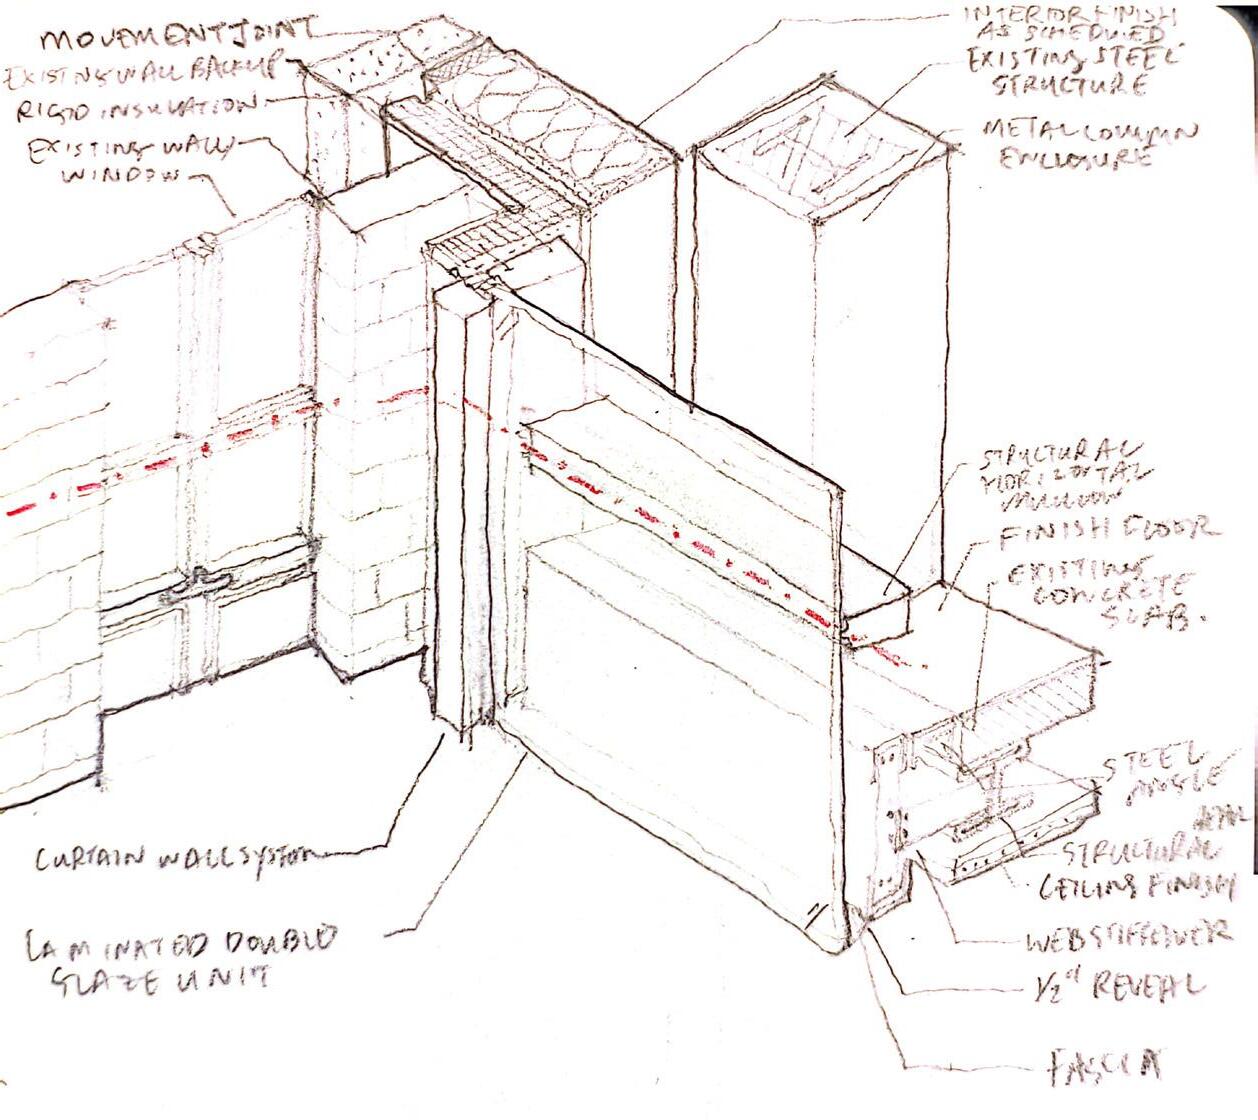 MOVEMENT JOINT
EXISTING WALL BACKUP
RIGID INSULATION
EXISTING WALL
WINDOW
INTERIOR FINISH
AS SCHEDULED
EXISTING STEEL
STRUCTURE
METAL COLUMN
ENCLOSURE
STRUCTURAL
HORIZONTAL
MULLION
FINISH FLOOR
EXISTING
CONCRETE
SLAB.
STEEL
ANGLE
STRUCTURAL
CEILING FINISH
WEB STIFFENER
1/2" REVEAL
FASCIA
CURTAIN WALL SYSTEM
LAMINATED DOUBLE
GLAZE UNIT